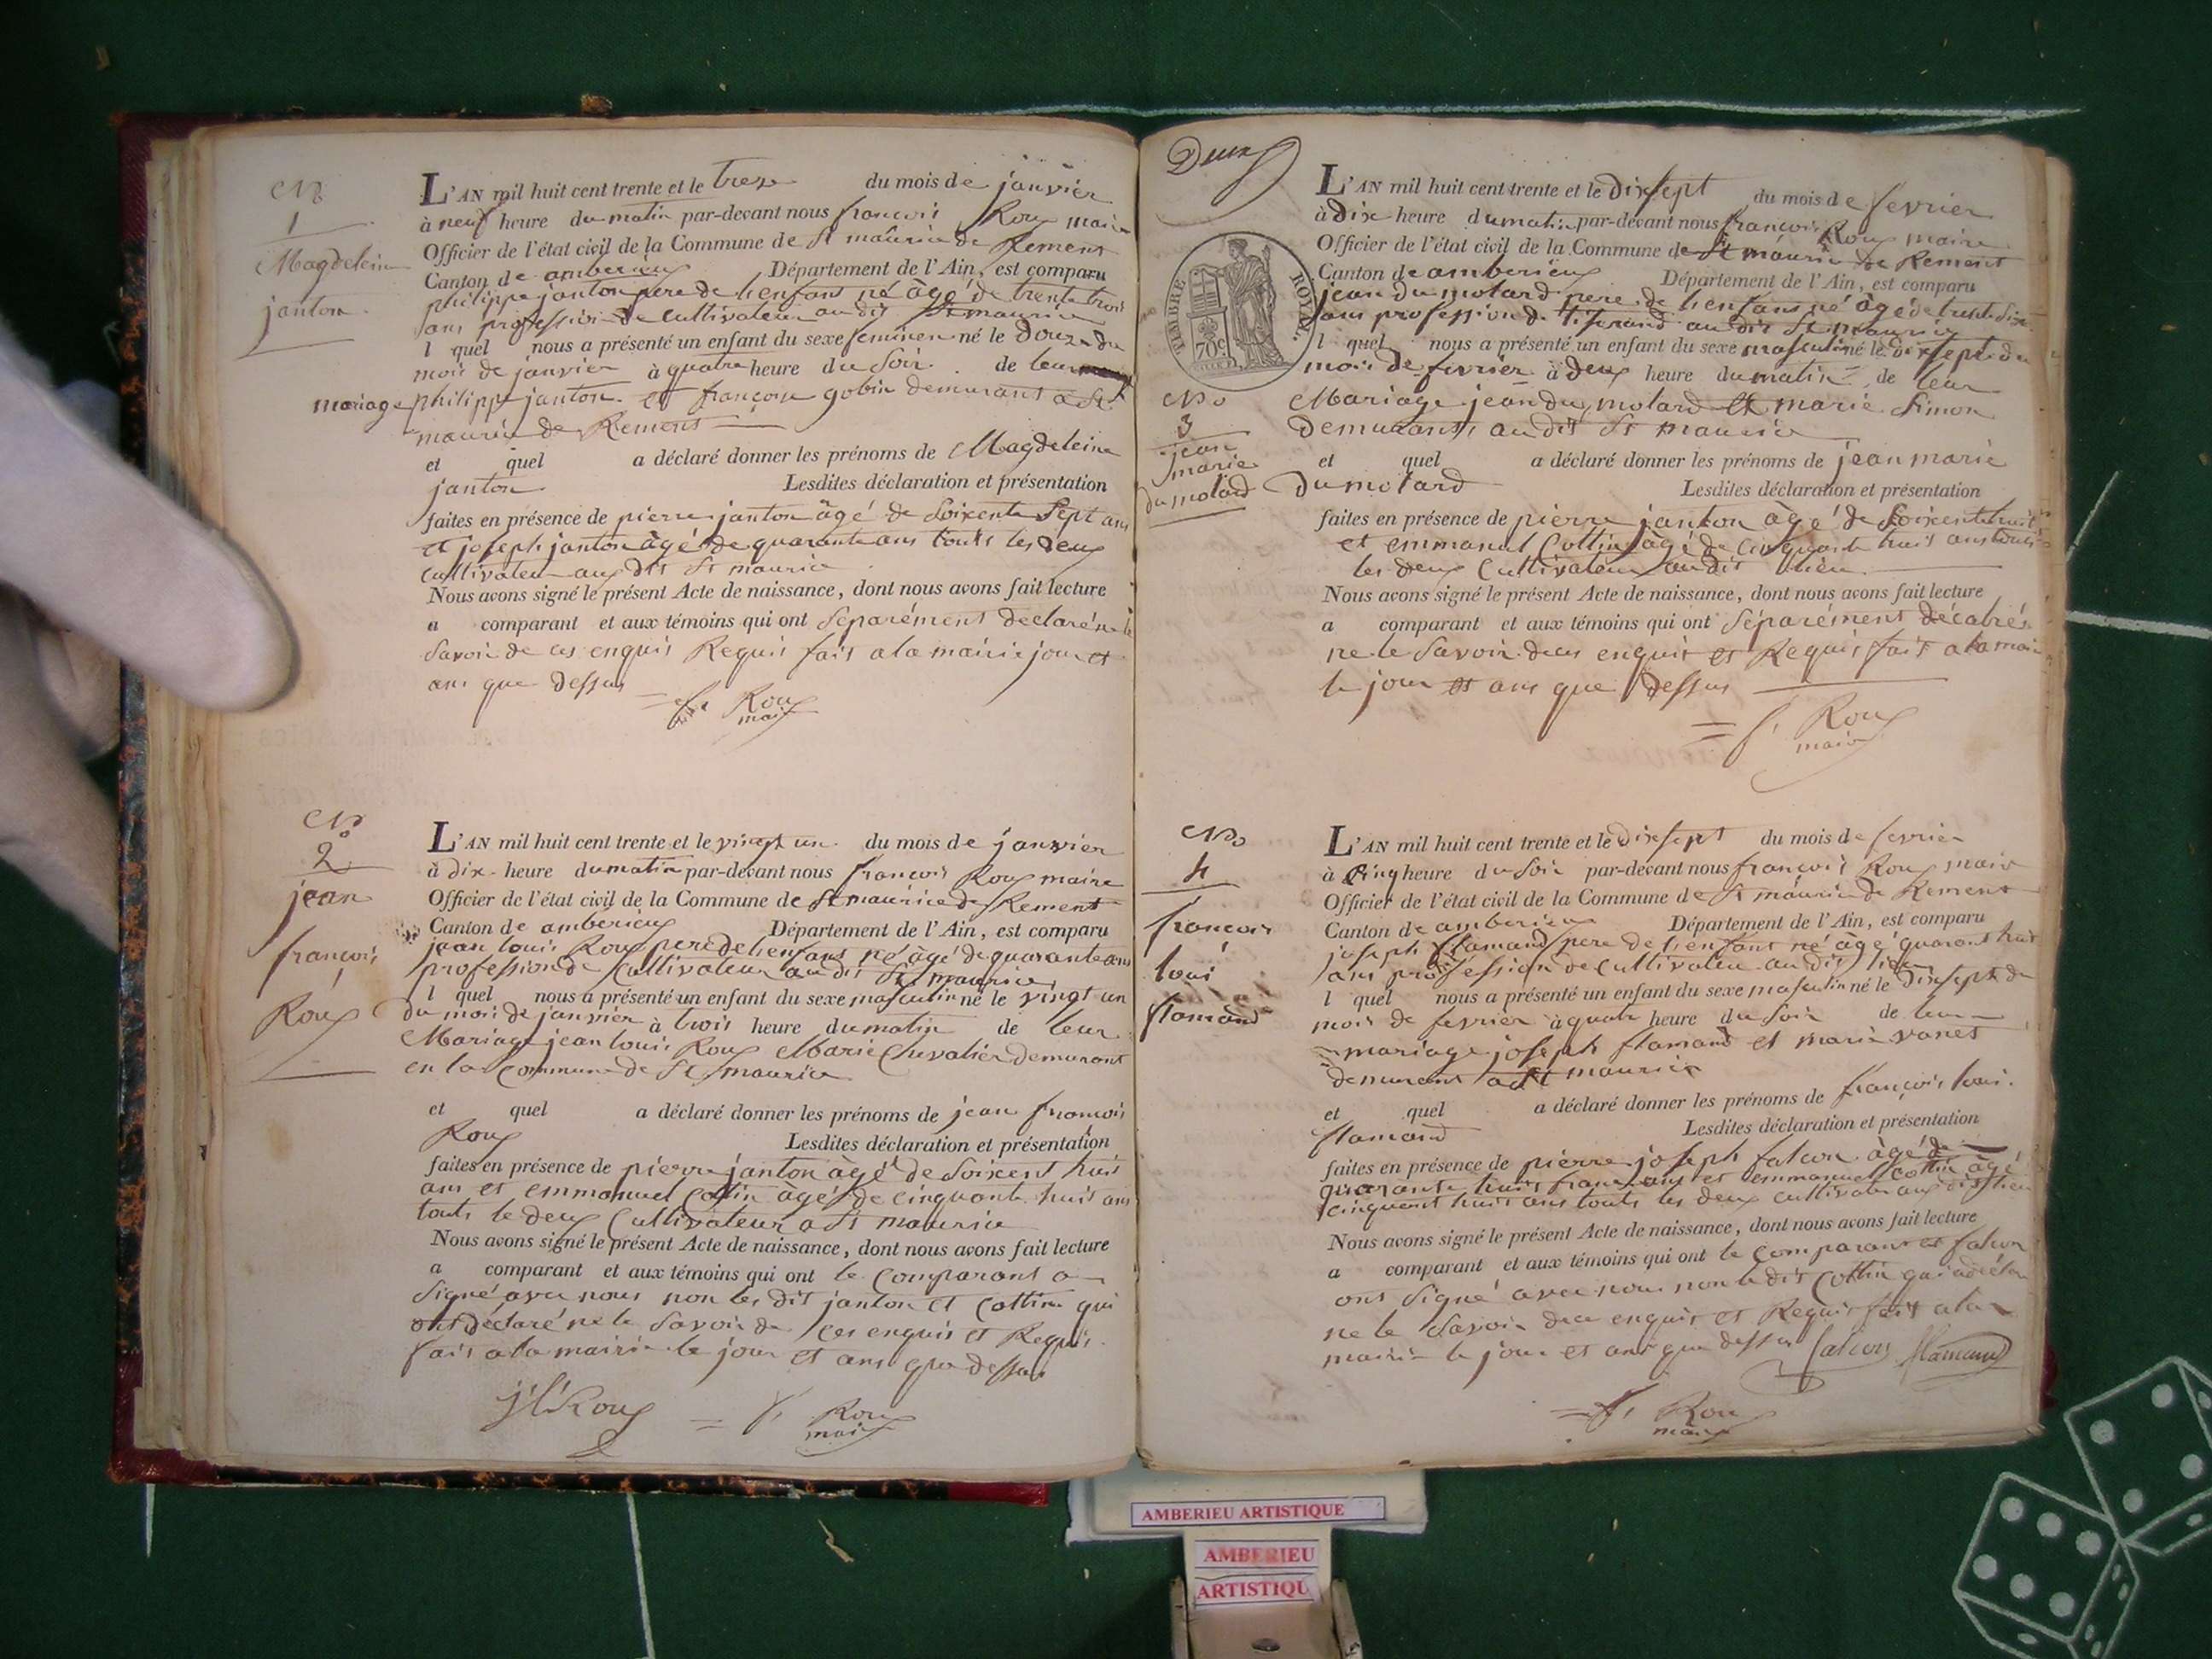 No
1
Magdeleine
janton
L'AN mil huit cent trente et le treze du mois de janvier
à neuf heure du matin par-devant nous françois Roux maire
Officier de l'état civil de la Commune de St maûrice de Remens
Canton de amberieux Département de l'Ain, est comparu
philippe janton pere de lienfans né âgé de trente trois
ans profession de Cultivateur au dit St maurice
l quel nous a présenté un enfant du sexe feminen né le Douze du
mois de janvier à quatre heure du Soir de leur
mariage philippe janton et françoise gobin demurant a St
maurice de Remens
et quel a déclaré donner les prénoms de Magdeleine
janton Lesdites déclaration et présentation
faites en présence de pierre janton âgé de Soixente Sept ans
et joseph janton âgé de quarante ans touts les deux
Cultivateur aux dit St maurice
Nous avons signé le présent Acte de naissance, dont nous avons fait lecture
a comparant et aux témoins qui ont Séparément declaré ne le
Savoir de ces enquis Requis fait a la mairie jour et
ans que dessus
= f. Roux
maire
No
2
jean
françois
Roux
L'AN mil huit cent trente et le vingt un du mois de janvier
à dix heure du matin par-devant nous françois Roux maire
Officier de l'état civil de la Commune de St maurice de Remens
Canton de amberieux Département de l'Ain, est comparu
jean louis Roux pere de lienfans né âgé de quarante ans
profession de Cultivateur au dit St maurice
l quel nous a présenté un enfant du sexe masculin né le vingt un
du mois de janvier à trois heure du matin de leur
Mariage jean louis Roux Marie Chevalier demurant
en la Commune de St maurice
et quel a déclaré donner les prénoms de jean françois
Roux Lesdites déclaration et présentation
faites en présence de pierre janton âgé de Soixent huit
ans et emmanuel Cottin âgé de cinquante huit ans
touts le deux Cultivateur a St maurice
Nous avons signé le présent Acte de naissance, dont nous avons fait lecture
a comparant et aux témoins qui ont le Comparant a
Signé avec nous non les dit janton et Cottin qui
ont déclaré ne le Savoir de ces enquis et Requis
fait a la mairie le jour et ans que dessus
j l Roux = f. Roux
maire
Deux
TIMBRE ROYAL
70c
No
3
jean
marie
dumolard
L'AN mil huit cent trente et le Dixsept du mois de fevrier
à Dix heure du matin par-devant nous françois Roux maire
Officier de l'état civil de la Commune de St maurice de Remens
Canton de amberieux Département de l'Ain, est comparu
jean dumolard pere de lienfans né âgé de trente Six
ans profession de tiserand au dit St maurice
l quel nous a présenté un enfant du sexe masculin né le dixsept du
mois de fevrier à deux heure du matin de leur
Mariage jean dumolard et marie Simon
Demurants au dit St maurice
et quel a déclaré donner les prénoms de jean marie
Dumolard Lesdites déclaration et présentation
faites en présence de pierre janton âgé de Soixente huit
et emmanuel Cottin âgé de cinquante huit ans touts
les deux Cultivateur au dit lieu
Nous avons signé le présent Acte de naissance, dont nous avons fait lecture
a comparant et aux témoins qui ont Séparément décalrés
ne le Savoir de ces enquis et Requis fait a la mairi
le jour et ans que dessus
= f. Roux
maire
No
4
françois
loui
flamand
L'AN mil huit cent trente et le Dixsept du mois de fevrier
à Cinq heure du Soir par-devant nous françois Roux maire
Officier de l'état civil de la Commune de St maurice de Remens
Canton de amberieux Département de l'Ain, est comparu
joseph flamand pere de lienfant né âgé quarant huit
ans profession de Cultivateu au dit lieu
l quel nous a présenté un enfant du sexe masculin né le Dixsept du
mois de fevrier à quatr heure du Soir de leur
mariage joseph flamand et marie vanet
demurans a St maurice
et quel a déclaré donner les prénoms de françois loui
flamand Lesdites déclaration et présentation
faites en présence de pierre joseph falcon âgé de
quarante huit ans et emmanuel Cottin âgé
cinquent huit ans touts les deux Cultivateur aux dit lieu
Nous avons signé le présent Acte de naissance, dont nous avons fait lecture
a comparant et aux témoins qui ont le Comparant et falcon
ont Signé avec nous non le dit Cottin qui a déclaré
ne le Savoir de ce enquis et Requis fait a la
mairie le jour et ans que dessus falcon flamand
= f. Roux
maire
AMBERIEU ARTISTIQUE
AMBERIEU
ARTISTIQU